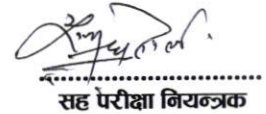 सह परीक्षा नियन्त्रक